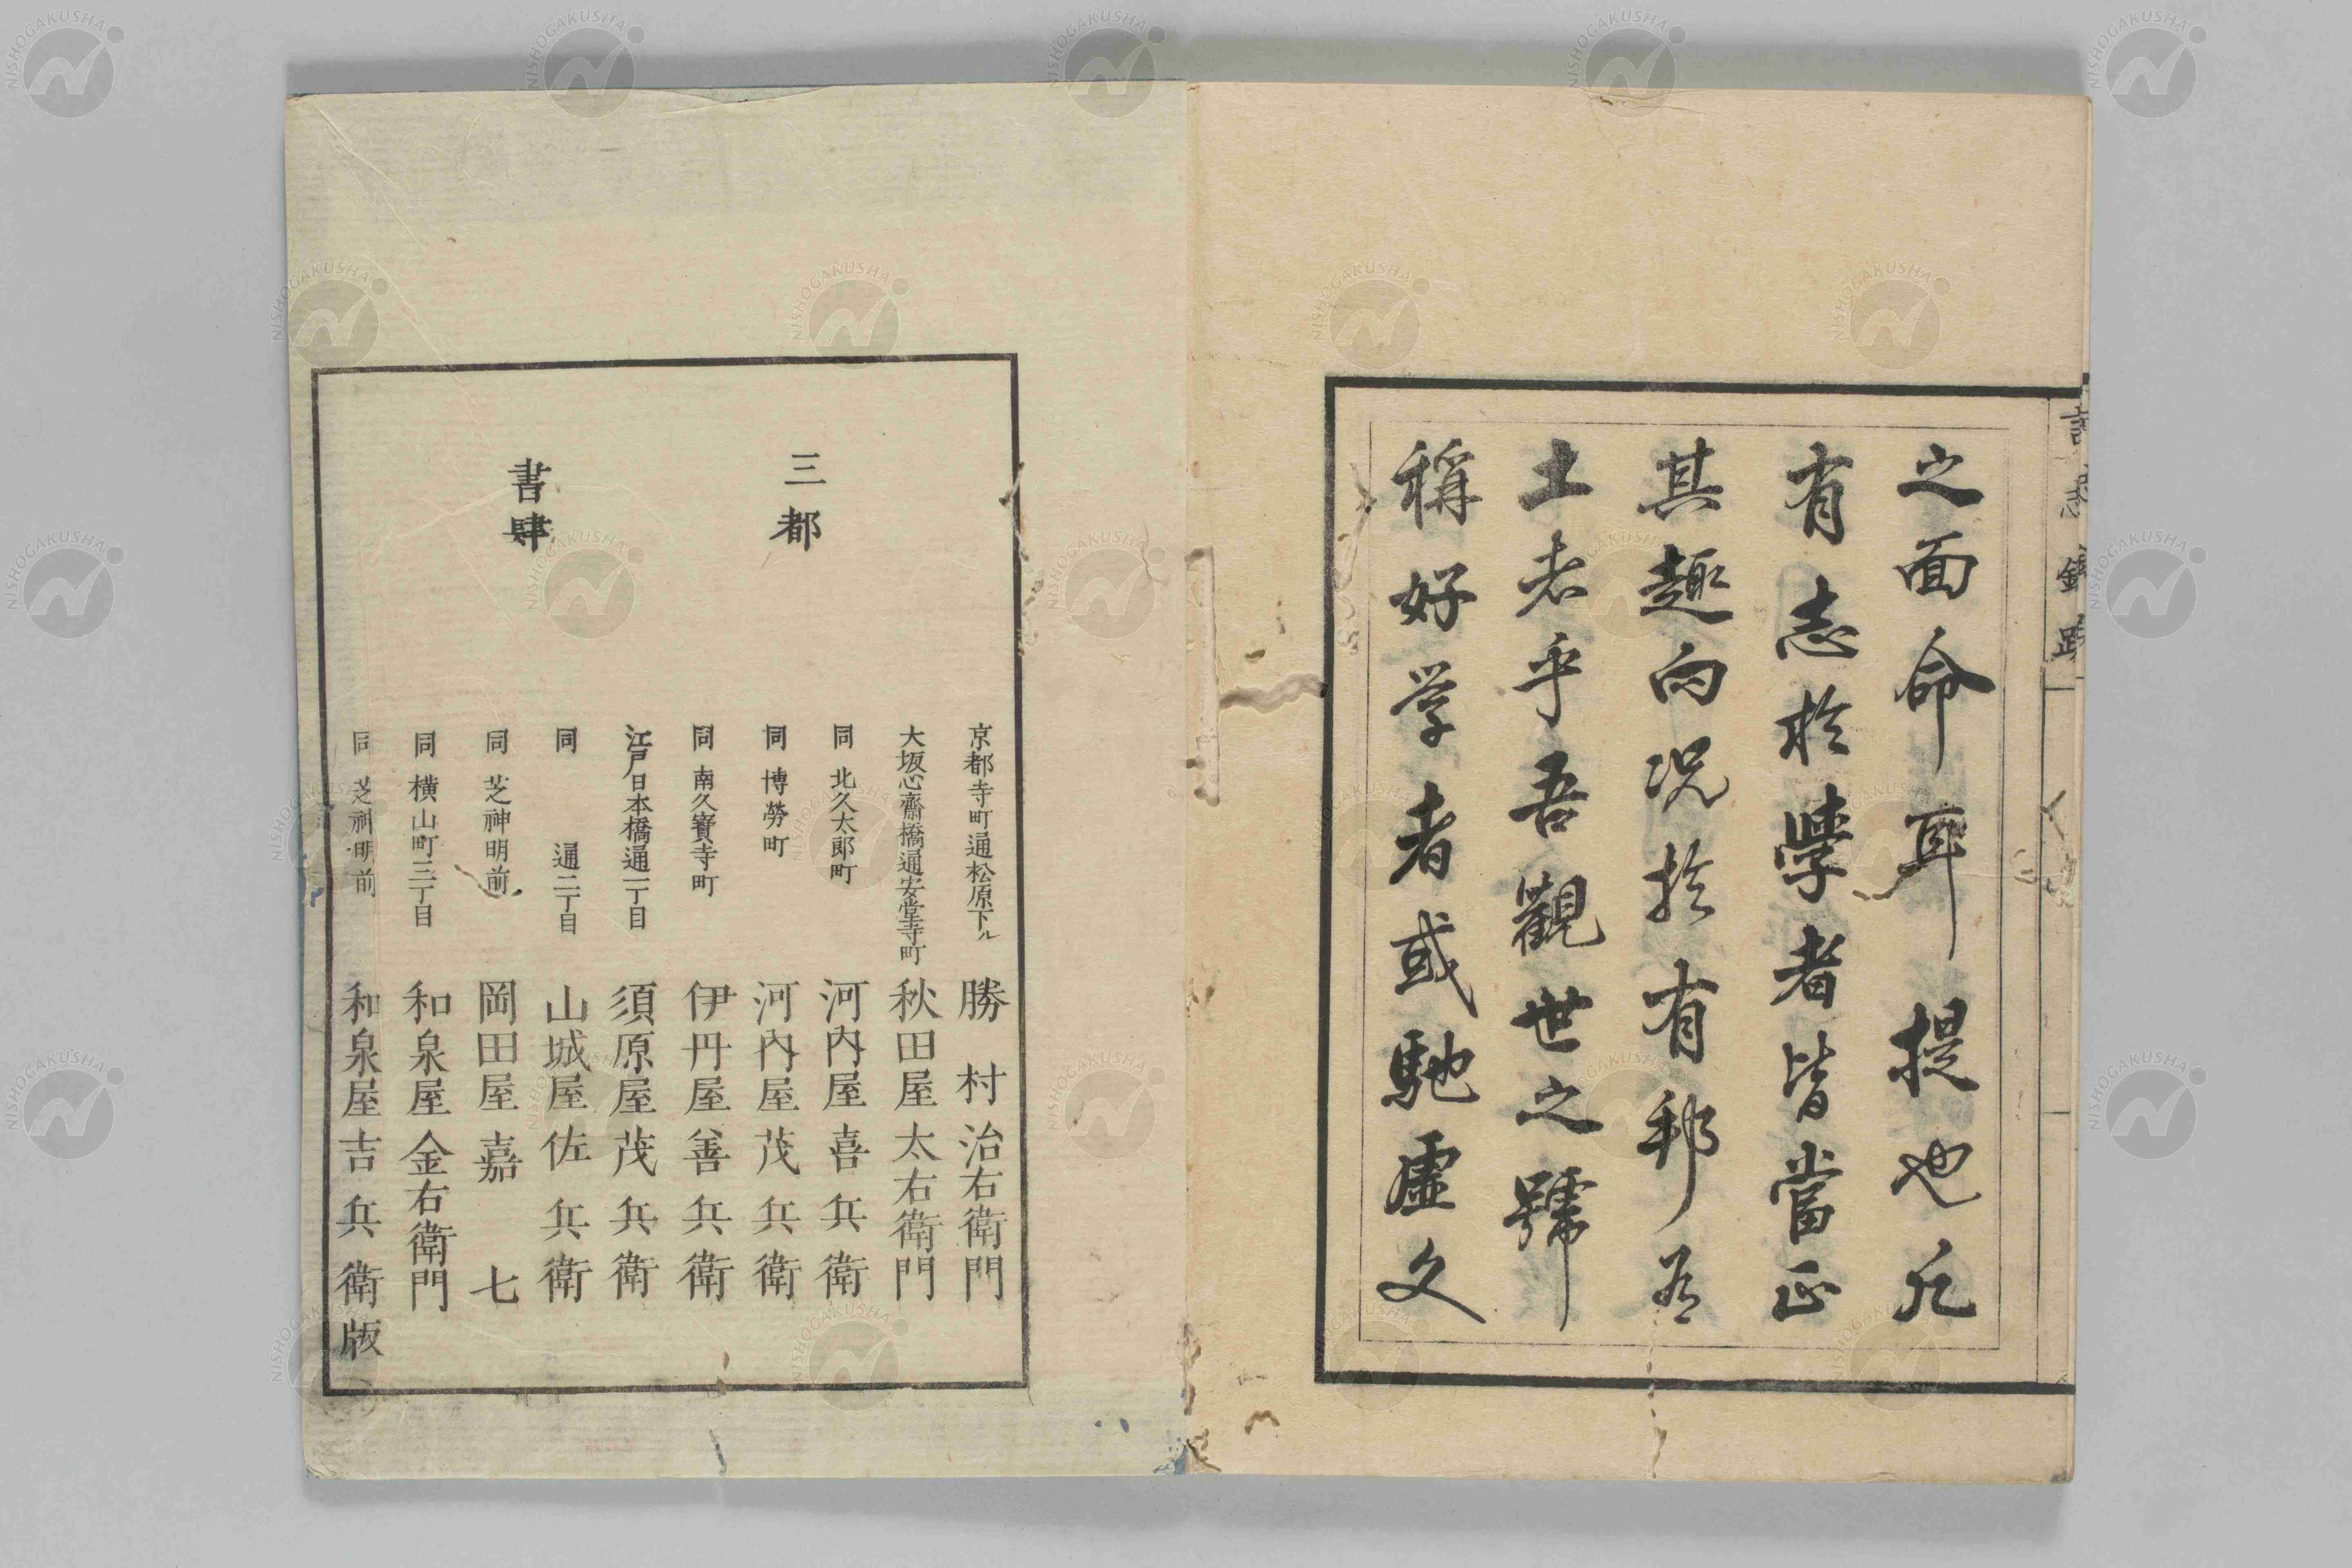 言志錄跋
之面命耳提也凡
有志於學者皆當正
其趣向況於有邦有
土者乎吾觀世之號
稱好学者或馳虛文
三都
書肆
京都寺町通松原下ル 勝村治右衛門
大坂心齋橋通安堂寺町 秋田屋太右衛門
同 北久太郎町 河内屋喜兵衛
同 博勞町 河内屋茂兵衛
同 南久寶寺町 伊丹屋善兵衛
江戸日本橋通一丁目 須原屋茂兵衛
同 通二丁目 山城屋佐兵衛
同 芝神明前 岡田屋嘉七
同 横山町三丁目 和泉屋金右衛門
同 芝神明前 和泉屋吉兵衛版
NISHOGAKUSHA